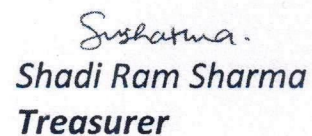 Susharma.
Shadi Ram Sharma
Treasurer